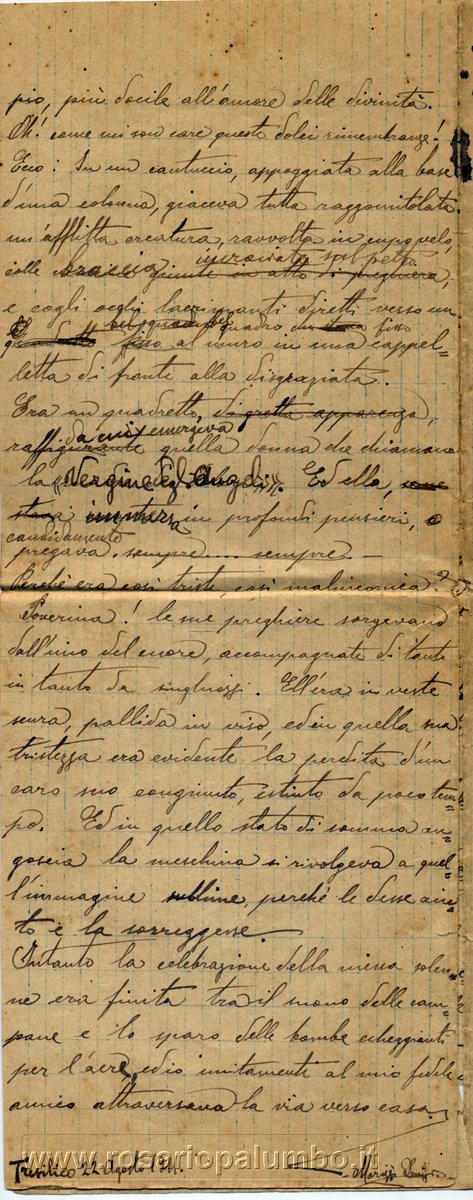 pio, più docile all'amore delle divinità.
Oh! come mi son care queste dolci rimembranze!
Ecco: In un cantuccio, appoggiata alla base
d'una colonna, giaceva tutta raggomitolata
un'afflitta creatura, ravvolta in cupo velo,
incrociate sul petto
colle braccia giunte in atto di preghiera,
e cogli occhi lacrimanti diretti verso un
quadro fisso
fisso al muro in una cappel=
letta di fronte alla disgraziata.
Era un quadretto, di gretta apparenza,
da cui emergeva
raffigurante quella donna che chiamano
la "Vergine degl'Angeli". Ed ella,
stava immersa in profondi pensieri, e
candidamente
pregava sempre.... sempre _
Perché era così triste, così malinconica?
Poverina! le sue preghiere sorgevano
dall'imo del cuore, accompagnate di tanto
in tanto da singhiozzi. Ell'era in veste
scura, pallida in viso, ed in quella sua
tristezza era evidente la perdita d'un
caro suo congiunto, estinto da poco tem=
po. Ed in quello stato di somma an=
goscia la meschina si rivolgeva a quel=
l'immagine sublime, perché le desse aiu=
to e la sorreggesse.
Intanto la celebrazione della messa solen=
ne era finita tra il suono delle cam=
pane e lo sparo delle bombe echeggianti
per l'aere, ed io unitamente al mio fedele
amico attraversava la via verso casa.
www.rosariopalumbo.it
Tresilico 22 Agosto